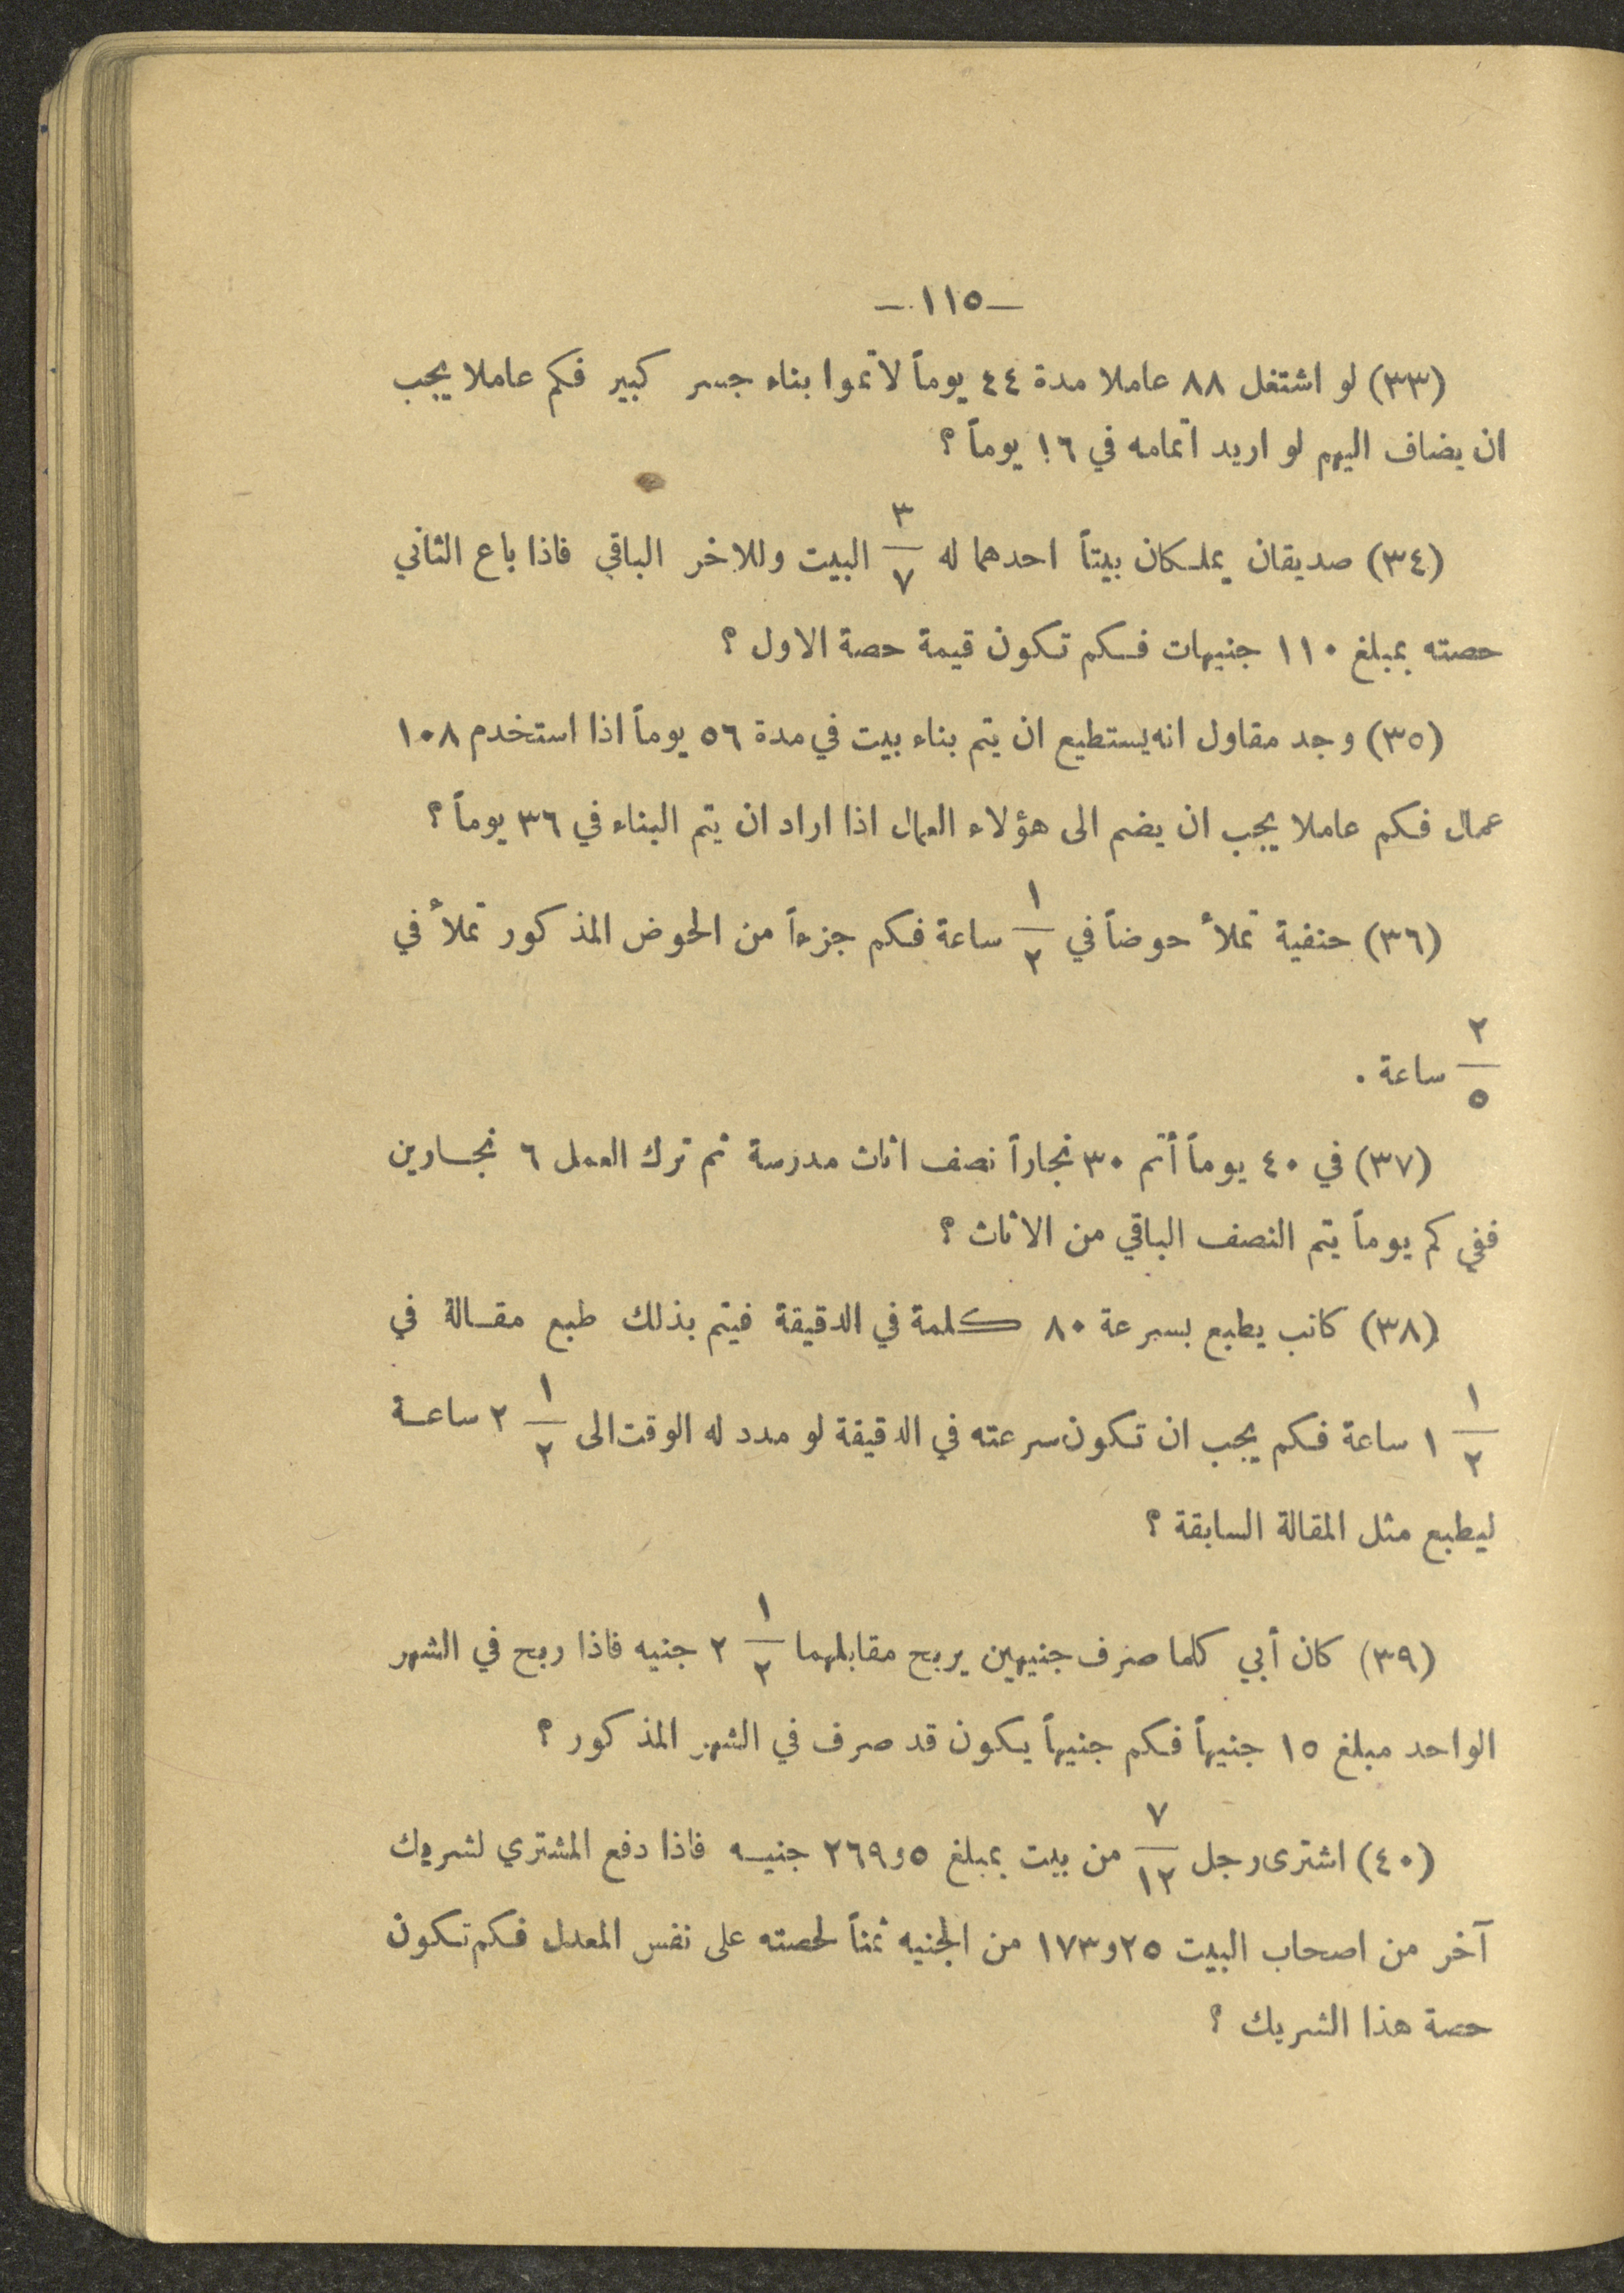 — ١١٥ —
(٣٣) لو اشتغل ٨٨ عاملا مدة ٤٤ يوماً لاتموا بناء جسر كبير فكم عاملا يجب
ان يضاف اليهم لو اريد اتمامه في ١٦ يوماً ؟
(٣٤) صديقان يملكان بيتاً احدهما له ٣/٧ البيت وللاخر الباقي فاذا باع الثاني
حصته بمبلغ ١١٠ جنيهات فكم تكون قيمة حصة الاول ؟
(٣٥) وجد مقاول انه يستطيع ان يتم بناء بيت في مدة ٥٦ يوماً اذا استخدم ١٠٨
عمال فكم عاملا يجب ان يضم الى هؤلاء العمال اذا اراد ان يتم البناء في ٣٦ يوماً ؟
(٣٦) حنفية تملأ حوضاً في ١/٢ ساعة فكم جزءاً من الحوض المذكور تملأ في
٢/٥ ساعة .
(٣٧) في ٤٠ يوماً أتم ٣٠ نجاراً نصف اثاث مدرسة ثم ترك العمل ٦ نجارين
ففي كم يوماً يتم النصف الباقي من الاثاث ؟
(٣٨) كاتب يطبع بسرعة ٨٠ كلمة في الدقيقة فيتم بذلك طبع مقالة في
١ ١/٢ ساعة فكم يجب ان تكون سرعته في الدقيقة لو مدد له الوقت الى ٢ ١/٢ ساعة
ليطبع مثل المقالة السابقة ؟
(٣٩) كان أبي كلما صرف جنيهين يربح مقابلهما ٢ ١/٢ جنيه فاذا ربح في الشهر
الواحد مبلغ ١٥ جنيهاً فكم جنيهاً يكون قد صرف في الشهر المذكور ؟
(٤٠) اشترى رجل ٧/١٢ من بيت بمبلغ ٥و٢٦٩ جنيه فاذا دفع المشتري لشريك
آخر من اصحاب البيت ٢٥و١٧٣ من الجنيه ثمناً لحصته على نفس المعدل فكم تكون
حصة هذا الشريك ؟